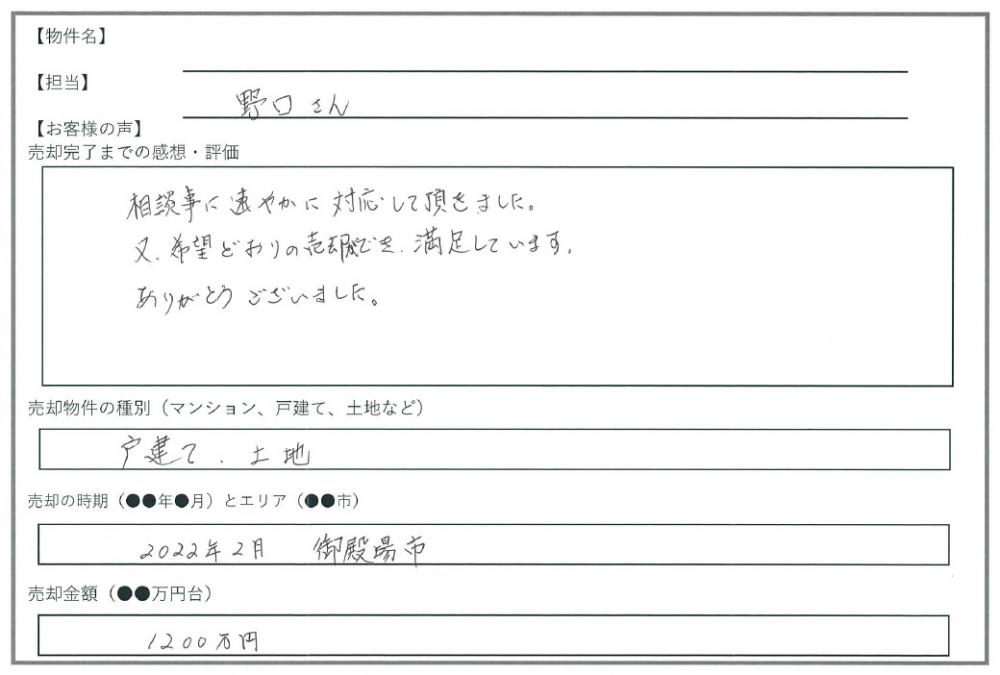 【物件名】
【担当】
野口さん
【お客様の声】
売却完了までの感想・評価
相談事に速やかに対応して頂きました。
又、希望どおりの売却でき、満足しています。
ありがとうございました。
売却物件の種別（マンション、戸建て、土地など）
戸建て、土地
売却の時期（●●年●月）とエリア（●●市）
2022年2月 御殿場市
売却金額（●●万円台）
1200万円